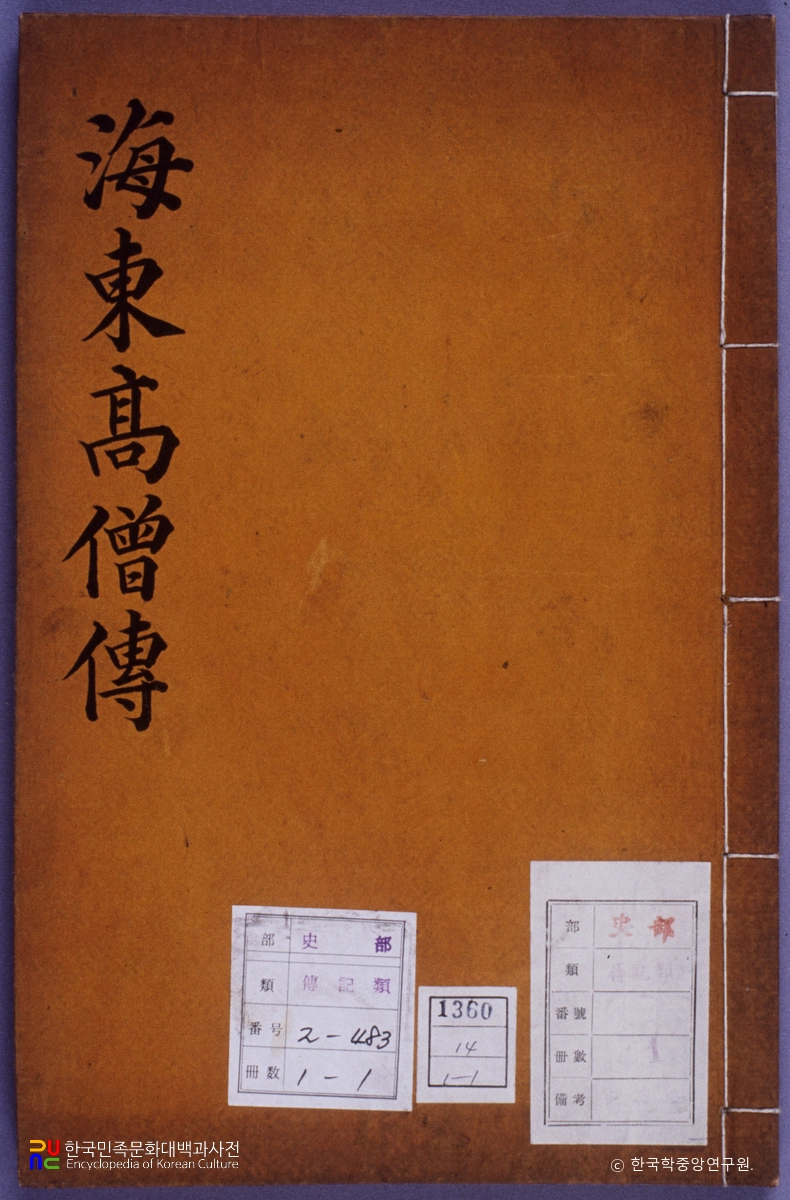 海東高僧傳
部 史部
類 傳記類
番号 2-483
冊数 1-1
1360
14
1-1
部 史部
類 傳記類
番號
冊數 1
備考
한국민족문화대백과사전
Encyclopedia of Korean Culture
ⓒ 한국학중앙연구원.